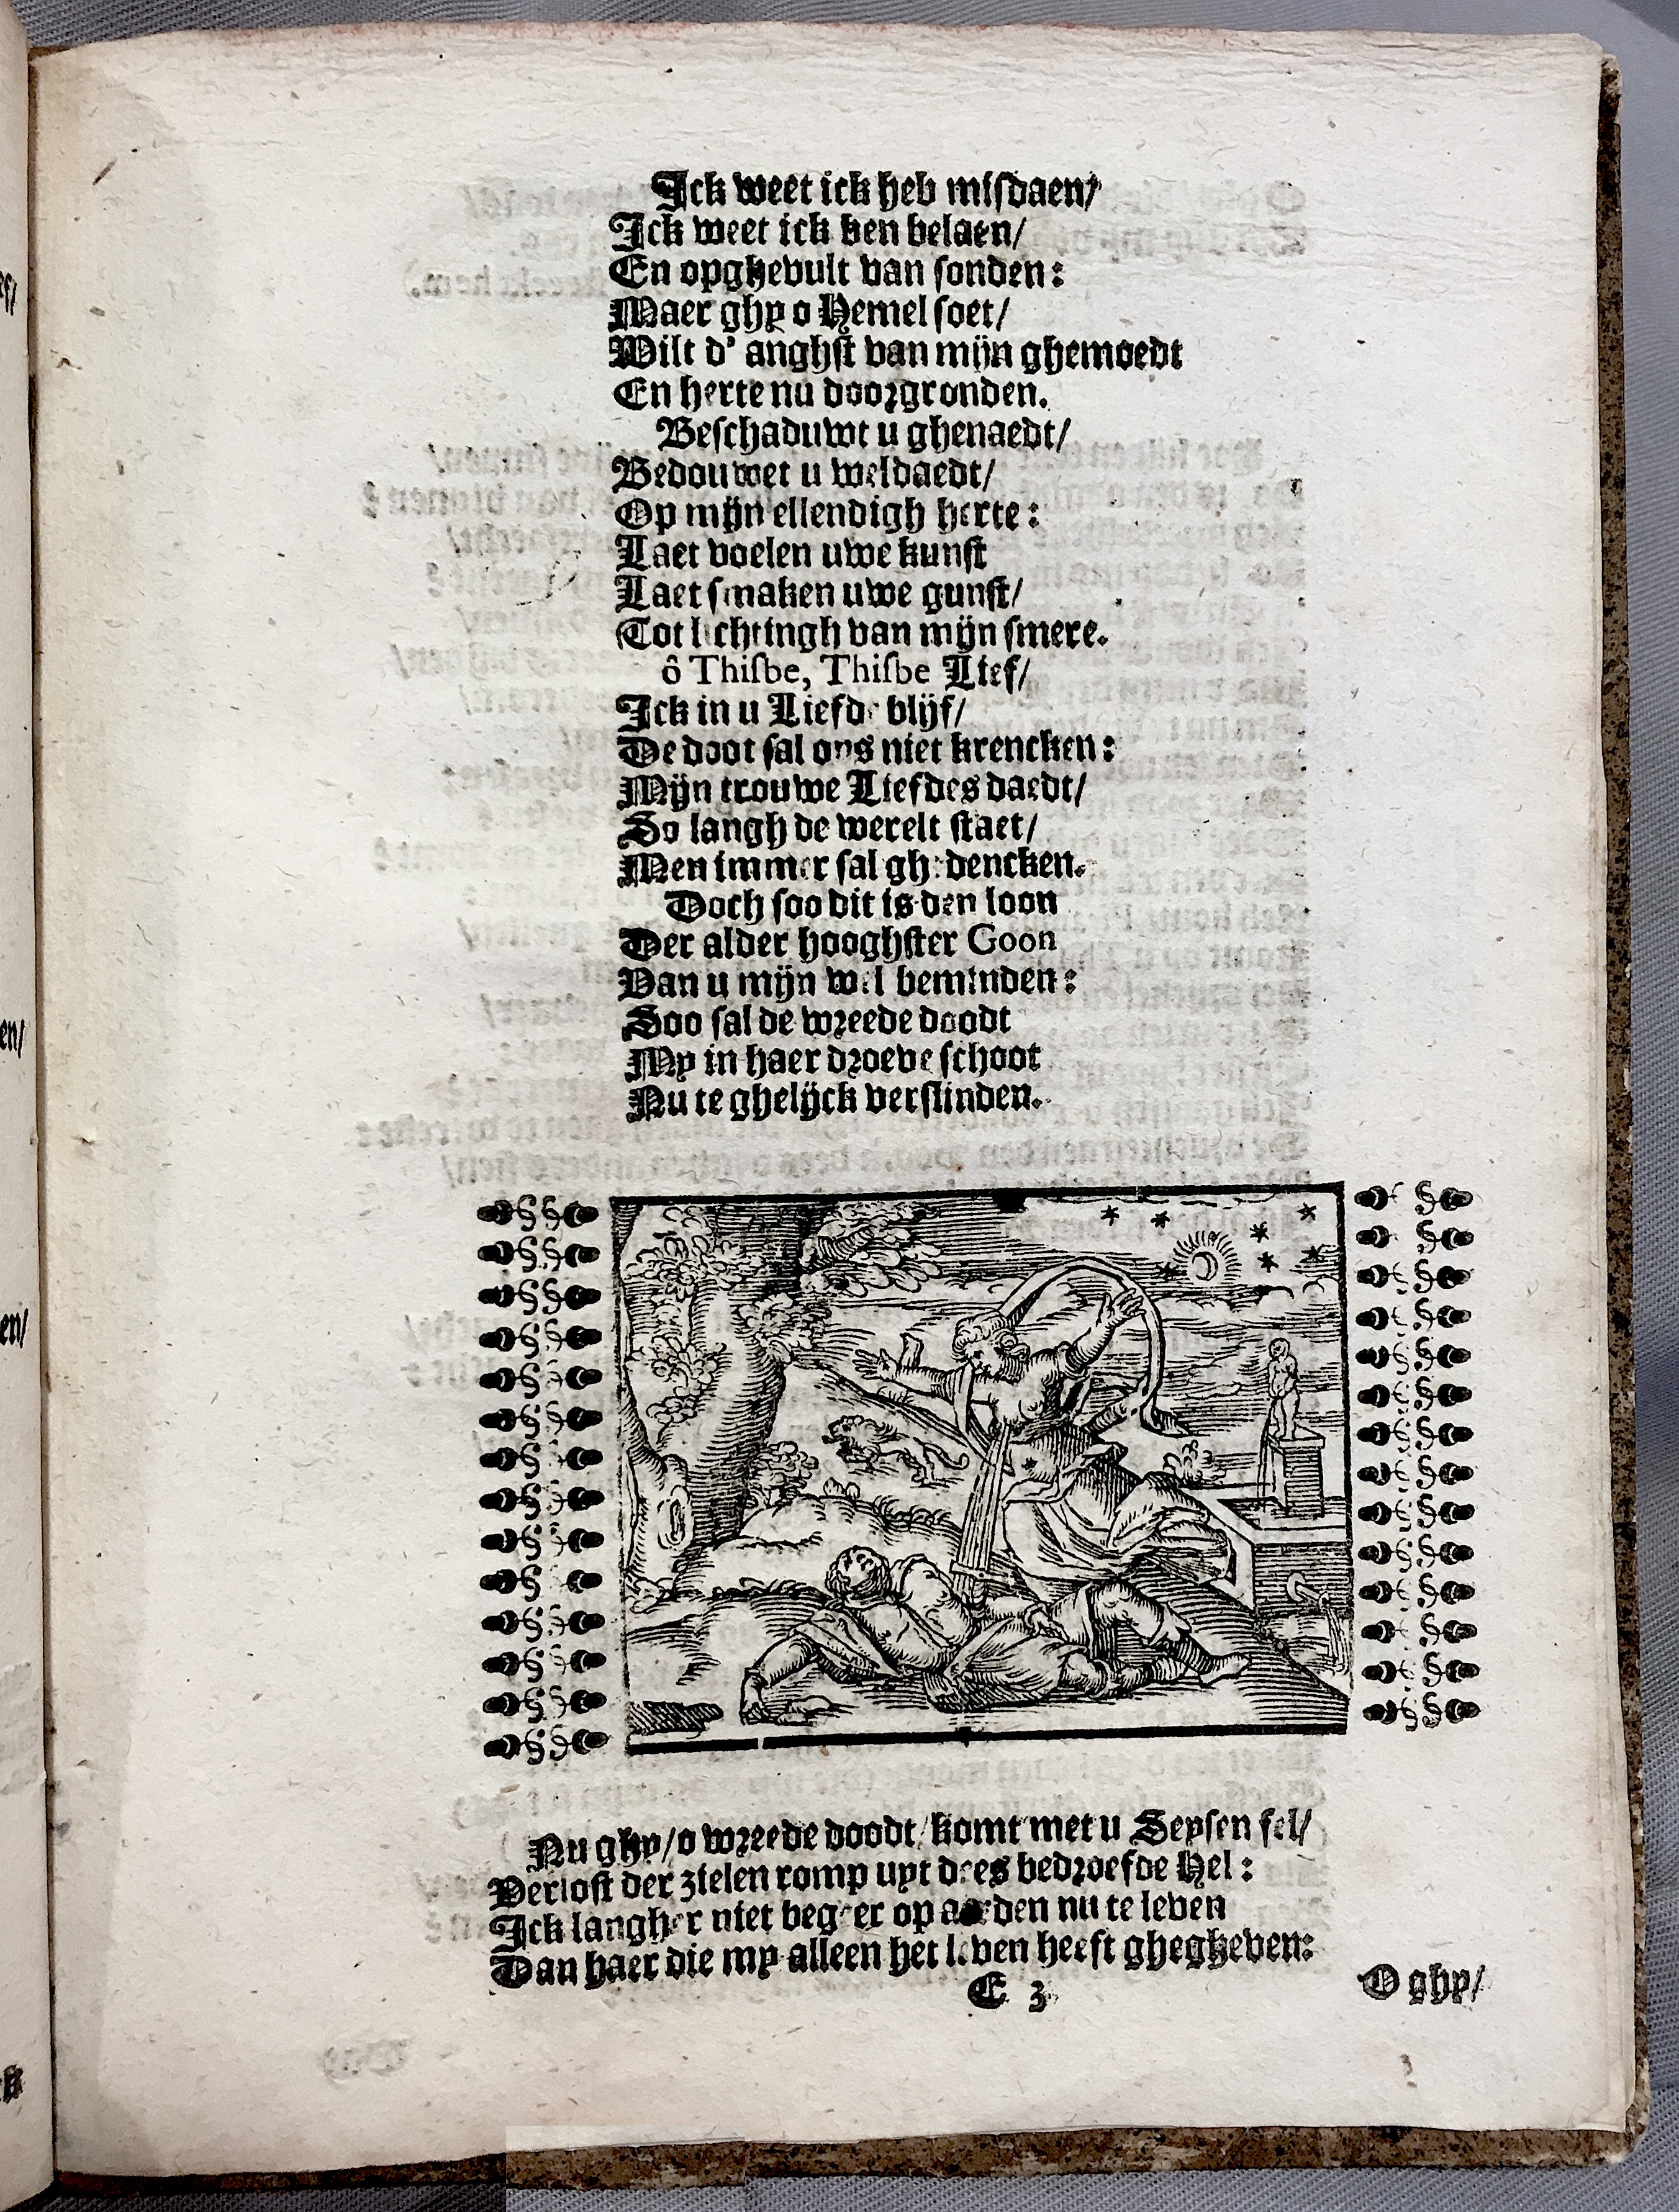 Ick weet ick heb misdaen/
Ick weet ick ben belaen/
En opghevult van sonden:
Maer ghy o Hemel soet/
Wilt d' anghst van mijn ghemoedt
En herte nu doorgronden.
Beschaduwt u ghenaedt/
Bedouwet u weldaedt/
Op mijn ellendigh herte:
Laet voelen uwe kunst
Laet smaken uwe gunst/
Tot lichtingh van mijn smerte.
ô Thisbe, Thisbe Lief/
Ick in u Liefde blijf/
De doot sal ons niet krencken:
Mijn trouwe Liefdes daedt/
So langh de werelt staet/
Men immer sal ghedencken.
Doch soo dit is den loon
Der alder hooghster Goon
Van u mijn wel beminden:
Soo sal de wreede doodt
My in haer droeve schoot
Nu te ghelijck verslinden.
Nu ghy/o wreede doodt/komt met u Seysen fel/
Verlost der zielen romp uyt dees bedroefde Hel:
Ick langher niet begeer op aerden nu te leven
Dan haer die my alleen het leven heeft ghegheven:
E 3
O ghy/
en/
en/